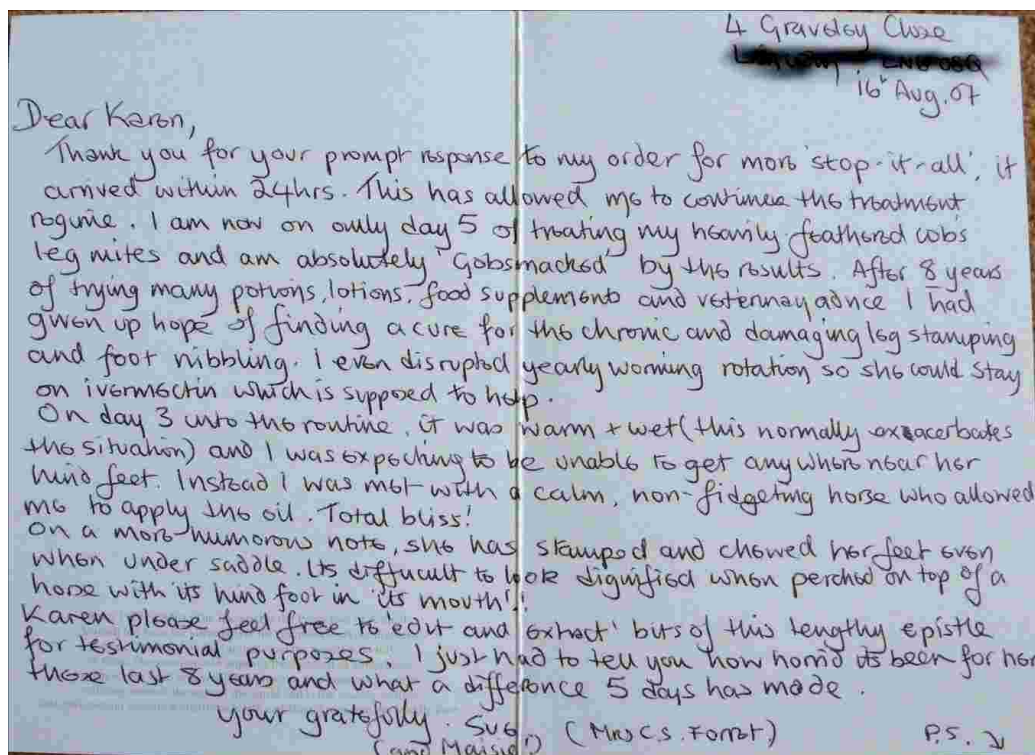 4 Graveley Close
16 Aug. 07
Dear Karen,
Thank you for your prompt response to my order for more 'stop-it-all', it
arrived within 24hrs. This has allowed me to continue the treatment
regime. I am now on only day 5 of treating my heavily feathered cobs
leg mites and am absolutely 'Gobsmacked' by the results. After 8 years
of trying many potions, lotions, food supplements and veterinay advice I had
given up hope of finding a cure for the chronic and damaging leg stamping
and foot nibbling. I even disrupted yearly worming rotation so she could stay
on ivermectin which is supposed to help.
On day 3 into the routine, it was warm + wet (this normally exacerbates
the situation) and I was expecting to be unable to get anywhere near her
hind feet. Instead I was met with a calm, non-fidgeting horse who allowed
me to apply the oil. Total bliss!
On a more humorous note, she has stamped and chewed her feet even
when under saddle. Its difficult to look dignified when perched on top of a
horse with its hind foot in its mouth!!
Karen please feel free to 'edit and extract' bits of this lengthy epistle
for testimonial purposes. I just had to tell you how horrid its been for her
these last 8 years and what a difference 5 days has made.
Your gratefully. Sue (Mrs C S. Forret) P.S. ↘
(and Maisie)